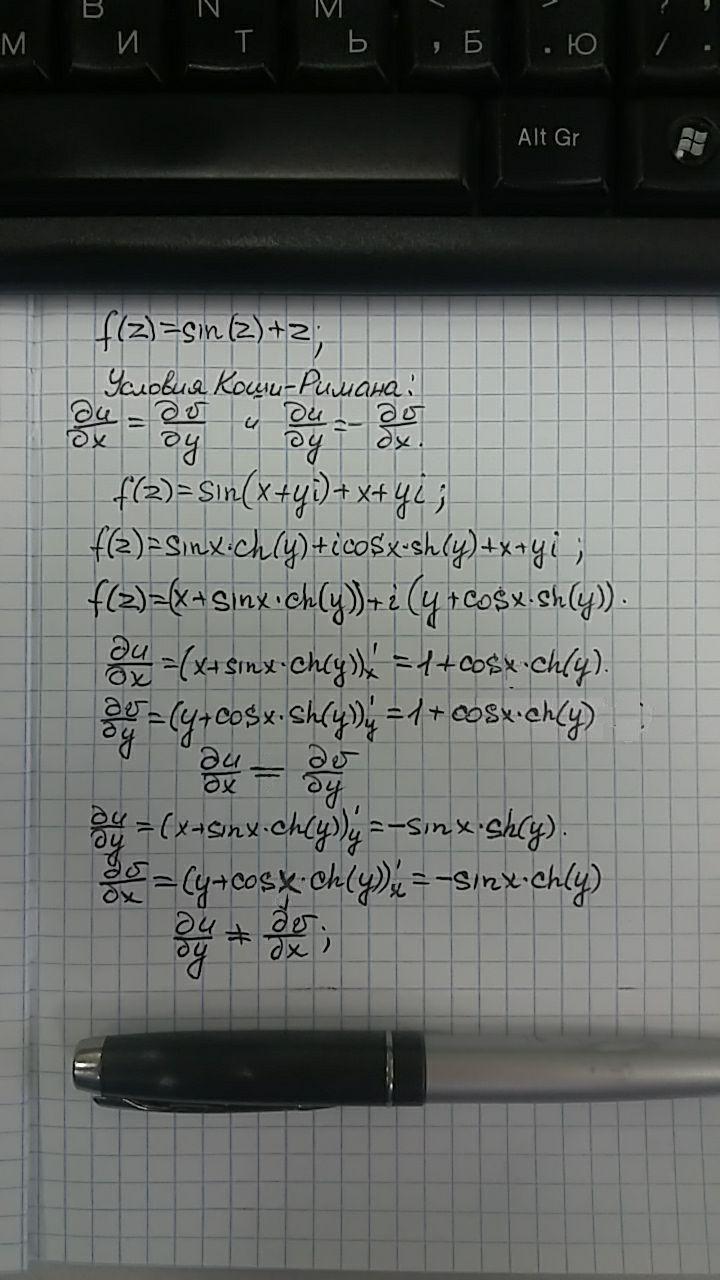 В N М < > ? ,
М И Т Ь , Б . Ю / .
Alt Gr
f(z)=sin(z)+z;
Условия Коши-Римана:
∂u/∂x = ∂v/∂y и ∂u/∂y = -∂v/∂x.
f(z)=sin(x+yi)+x+yi;
f(z)=sinx·ch(y)+icosx·sh(y)+x+yi;
f(z)=(x+sinx·ch(y))+i(y+cosx·sh(y)).
∂u/∂x =(x+sinx·ch(y))'x =1+cosx·ch(y).
∂v/∂y =(y+cosx·sh(y))'y =1+cosx·ch(y)
∂u/∂x = ∂v/∂y
∂u/∂y =(x+sinx·ch(y))'y =-sinx·sh(y).
∂v/∂x =(y+cosx·ch(y))'x =-sinx·ch(y)
∂u/∂y ≠ ∂v/∂x;